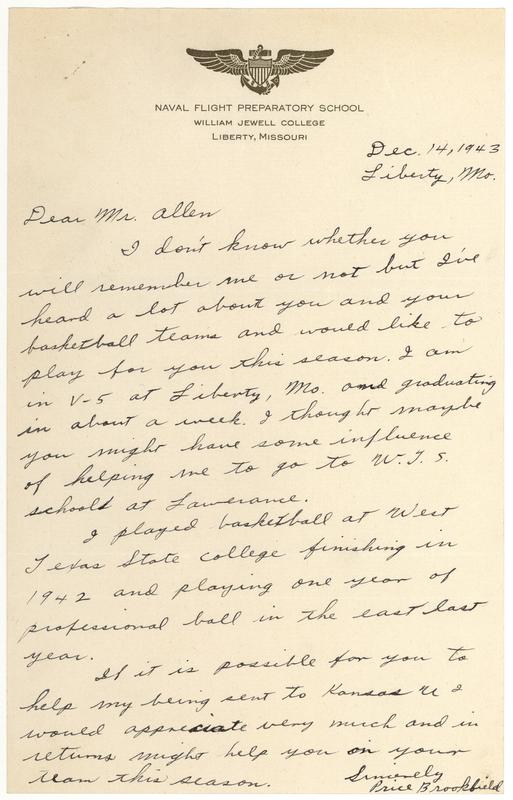 NAVAL FLIGHT PREPARATORY SCHOOL
WILLIAM JEWELL COLLEGE
LIBERTY, MISSOURI
Dec. 14, 1943
Liberty, Mo.
Dear Mr. Allen
I don't know whether you
will remember me or not but I've
heard a lot about you and your
basketball teams and would like to
play for you this season. I am
in V-5 at Liberty, Mo. and graduating
in about a week. I thought maybe
you might have some influence
of helping me to go to W.T.S.
school at Lawerance.
I played basketball at West
Texas State college finishing in
1942 and playing one year of
professional ball in the east last
year.
If it is possible for you to
help my being sent to Kansas U I
would appreciate very much and in
returns might help you on your
team this season.
Sincerely
Price Brookfield